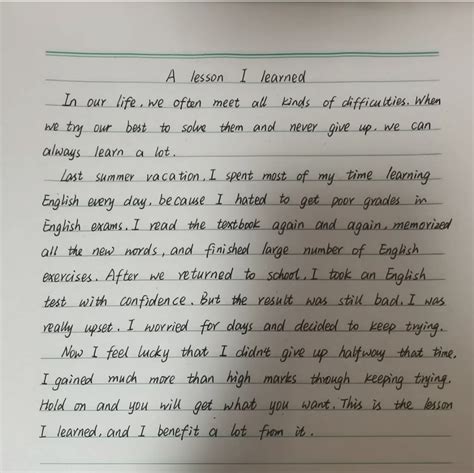 A lesson I learned
In our life, we often meet all kinds of difficulties. When
we try our best to solve them and never give up, we can
always learn a lot.
Last summer vacation, I spent most of my time learning
English every day, because I hated to get poor grades in
English exams. I read the textbook again and again, memorized
all the new words, and finished large number of English
exercises. After we returned to school, I took an English
test with confidence. But the result was still bad. I was
really upset. I worried for days and decided to keep trying.
Now I feel lucky that I didn't give up halfway that time.
I gained much more than high marks through keeping trying.
Hold on and you will get what you want. This is the lesson
I learned, and I benefit a lot from it.